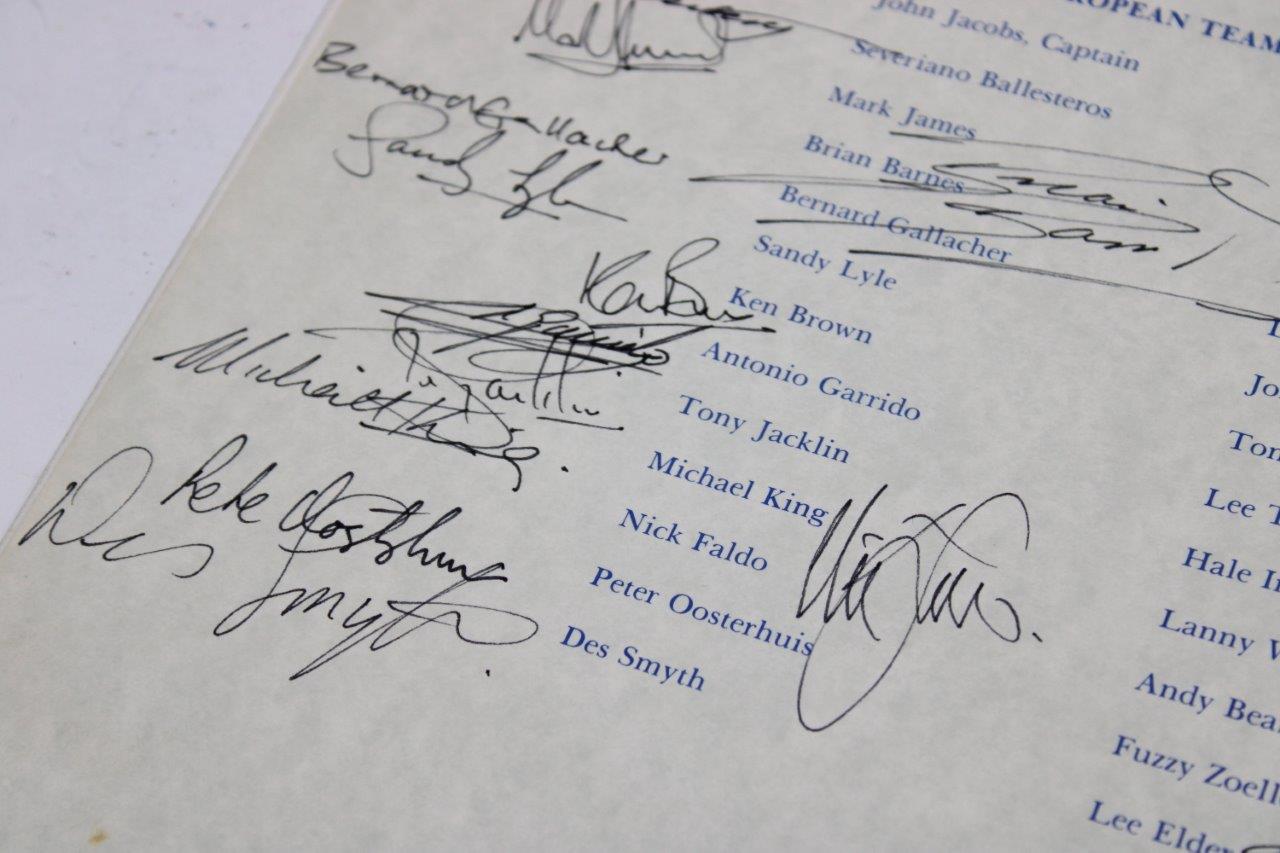 OPEAN TEAM
John Jacobs, Captain
Severiano Ballesteros
Mark James
Brian Barnes
Bernard Gallacher
Sandy Lyle
Ken Brown
Antonio Garrido
Tony Jacklin
Michael King
Nick Faldo
Peter Oosterhuis
Des Smyth
Bernard Gallacher
Sandy Lyle
Ken Brown
Michael King.
Pete Oosterhuis
Des Smyth.
Nick Faldo.
Jo
Tom
Lee T
Hale I
Lanny W
Andy Bea
Fuzzy Zoell
Lee Elder